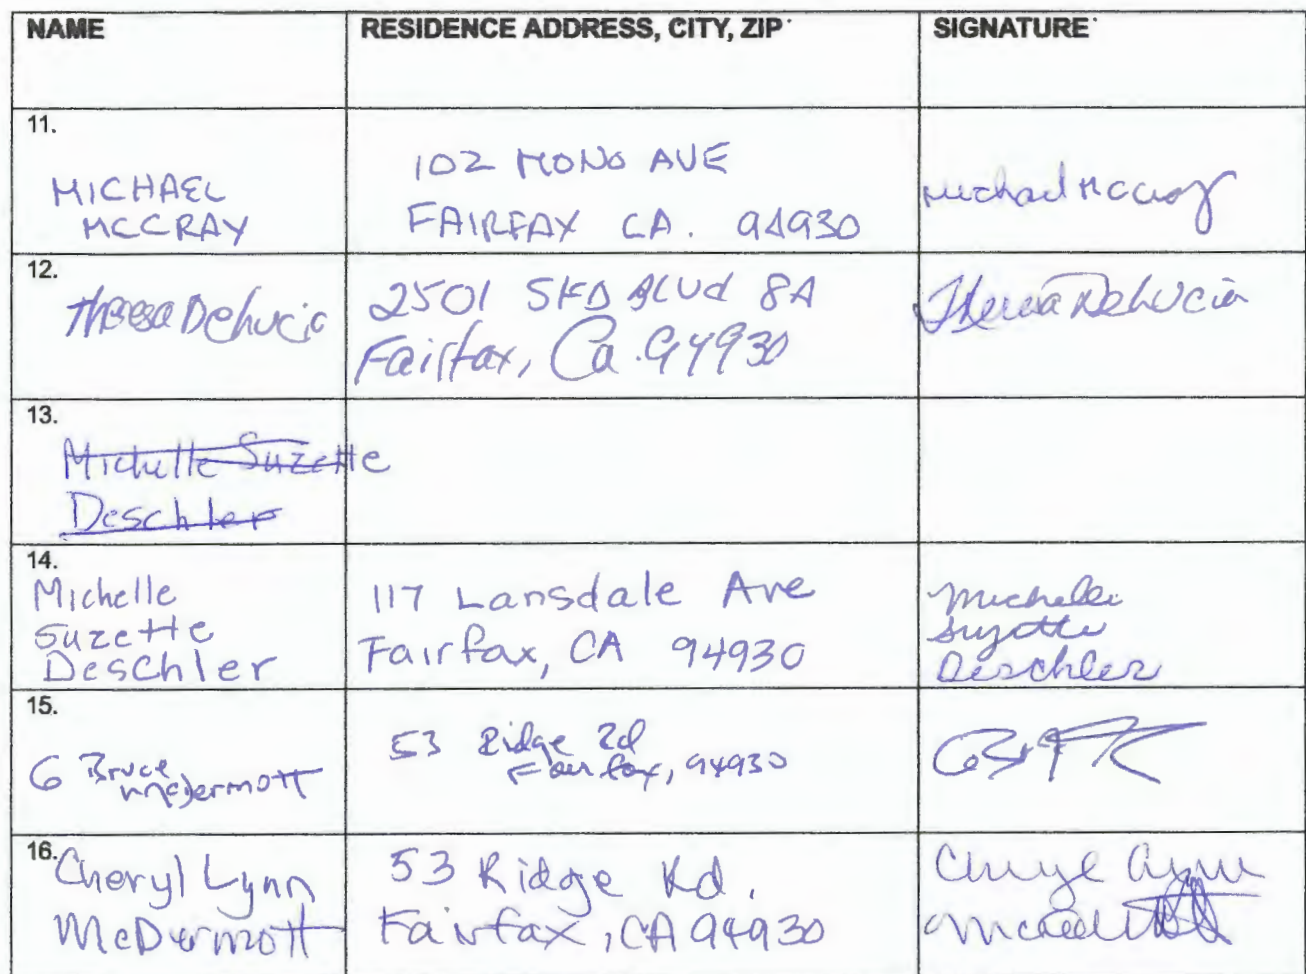 NAME RESIDENCE ADDRESS, CITY, ZIP SIGNATURE
11.
MICHAEL
MCCRAY
102 MONO AVE
FAIRFAX CA. 94930
Michael McCray
12.
Theresa DeLucia
2501 SFD BLVd 8A
Fairfax, Ca. 94930
Theresa DeLucia
13.
Michelle Suzette
Deschler
14.
Michelle
Suzette
Deschler
117 Lansdale Ave
Fairfax, CA 94930
Michelle
Suzette
Deschler
15.
G Bruce
McDermott
53 Ridge Rd
Fairfax, 94930
16.
Cheryl Lynn
McDermott
53 Ridge Rd.
Fairfax, CA 94930
Cheryl Lynn